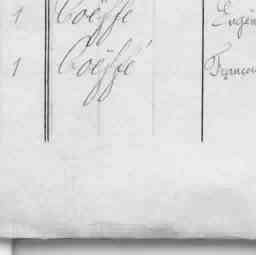 1 Coëffe Eugén
1 Coëffé Françoi